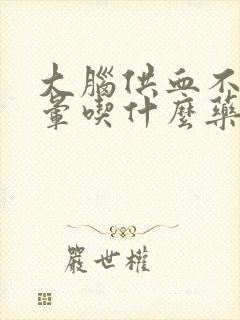 大腦供血不
暈喫什麼藥
嚴世權